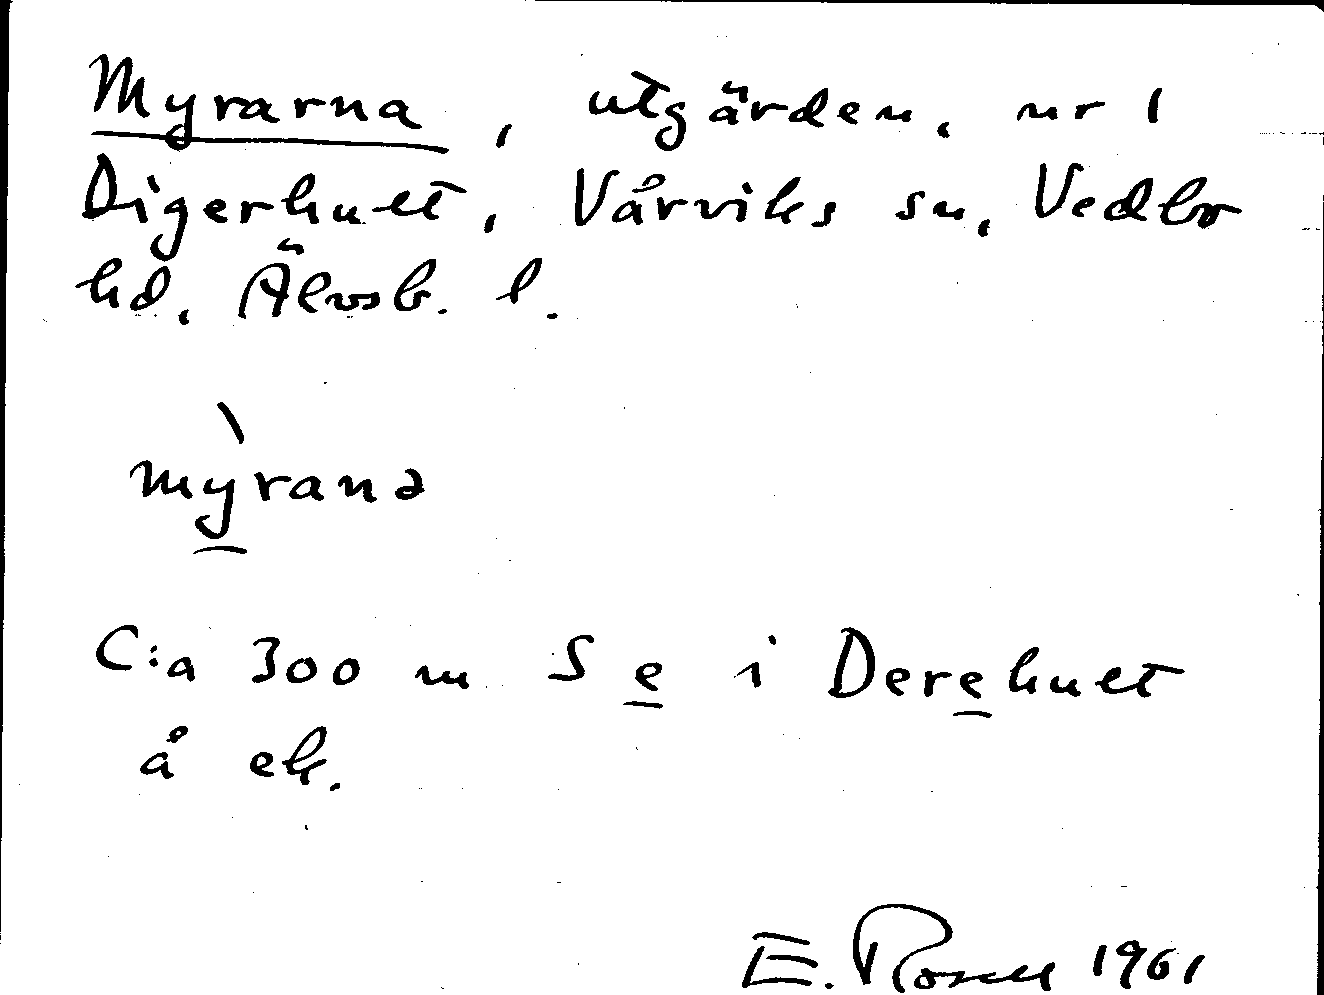 Myrarna, utgärden, nr 1
Digerhult, Vårviks sn, Vedbo
hd, Älvsb. l.
mỳranə
C:a 300 m S e i Derehult
å ek.
E. Rosell 1961